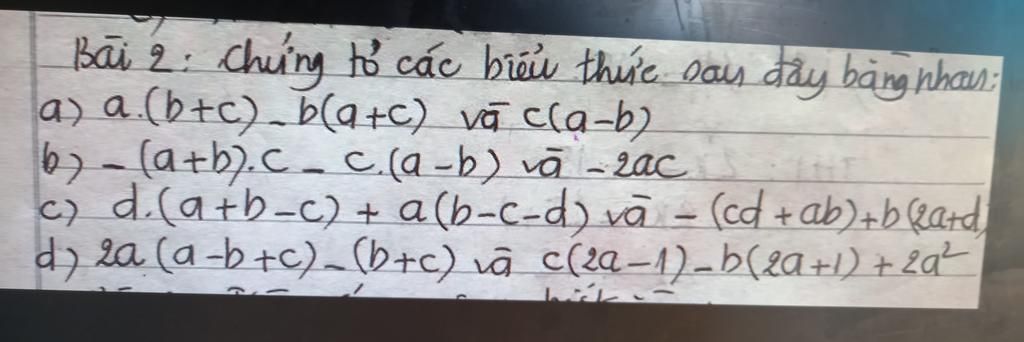 Bài 2: Chứng tỏ các biểu thức sau đây bằng nhau:
a) a.(b+c)-b(a+c) và c(a-b)
b) -(a+b).c - c.(a-b) và -2ac
c) d.(a+b-c) + a(b-c-d) và - (cd+ab)+b(2a+d)
d) 2a(a-b+c)-(b+c) và c(2a-1)-b(2a+1)+2a²